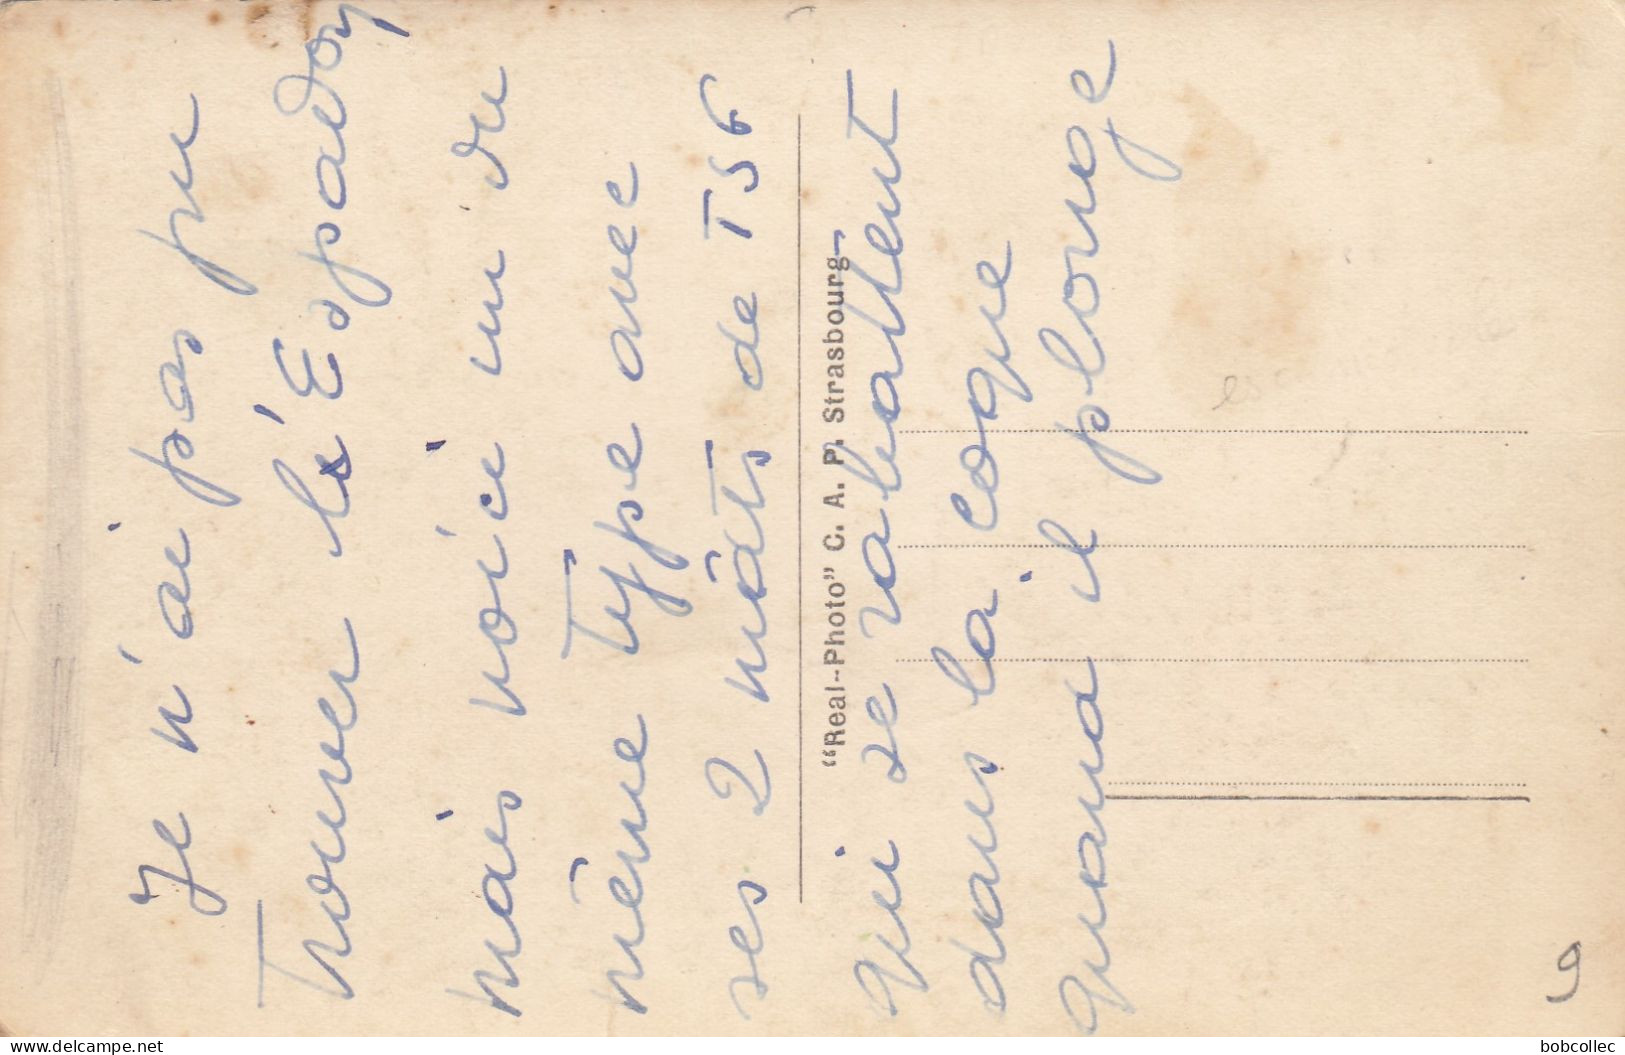 Je n'ai pas pu
trouver l'Espadon
mais voici un du
même type avec
ses 2 mâts de TSF
"Real--Photo" C. A. P. Strasbourg
qui se rabattent
dans la coque
quand il plonge
9
bobcollec